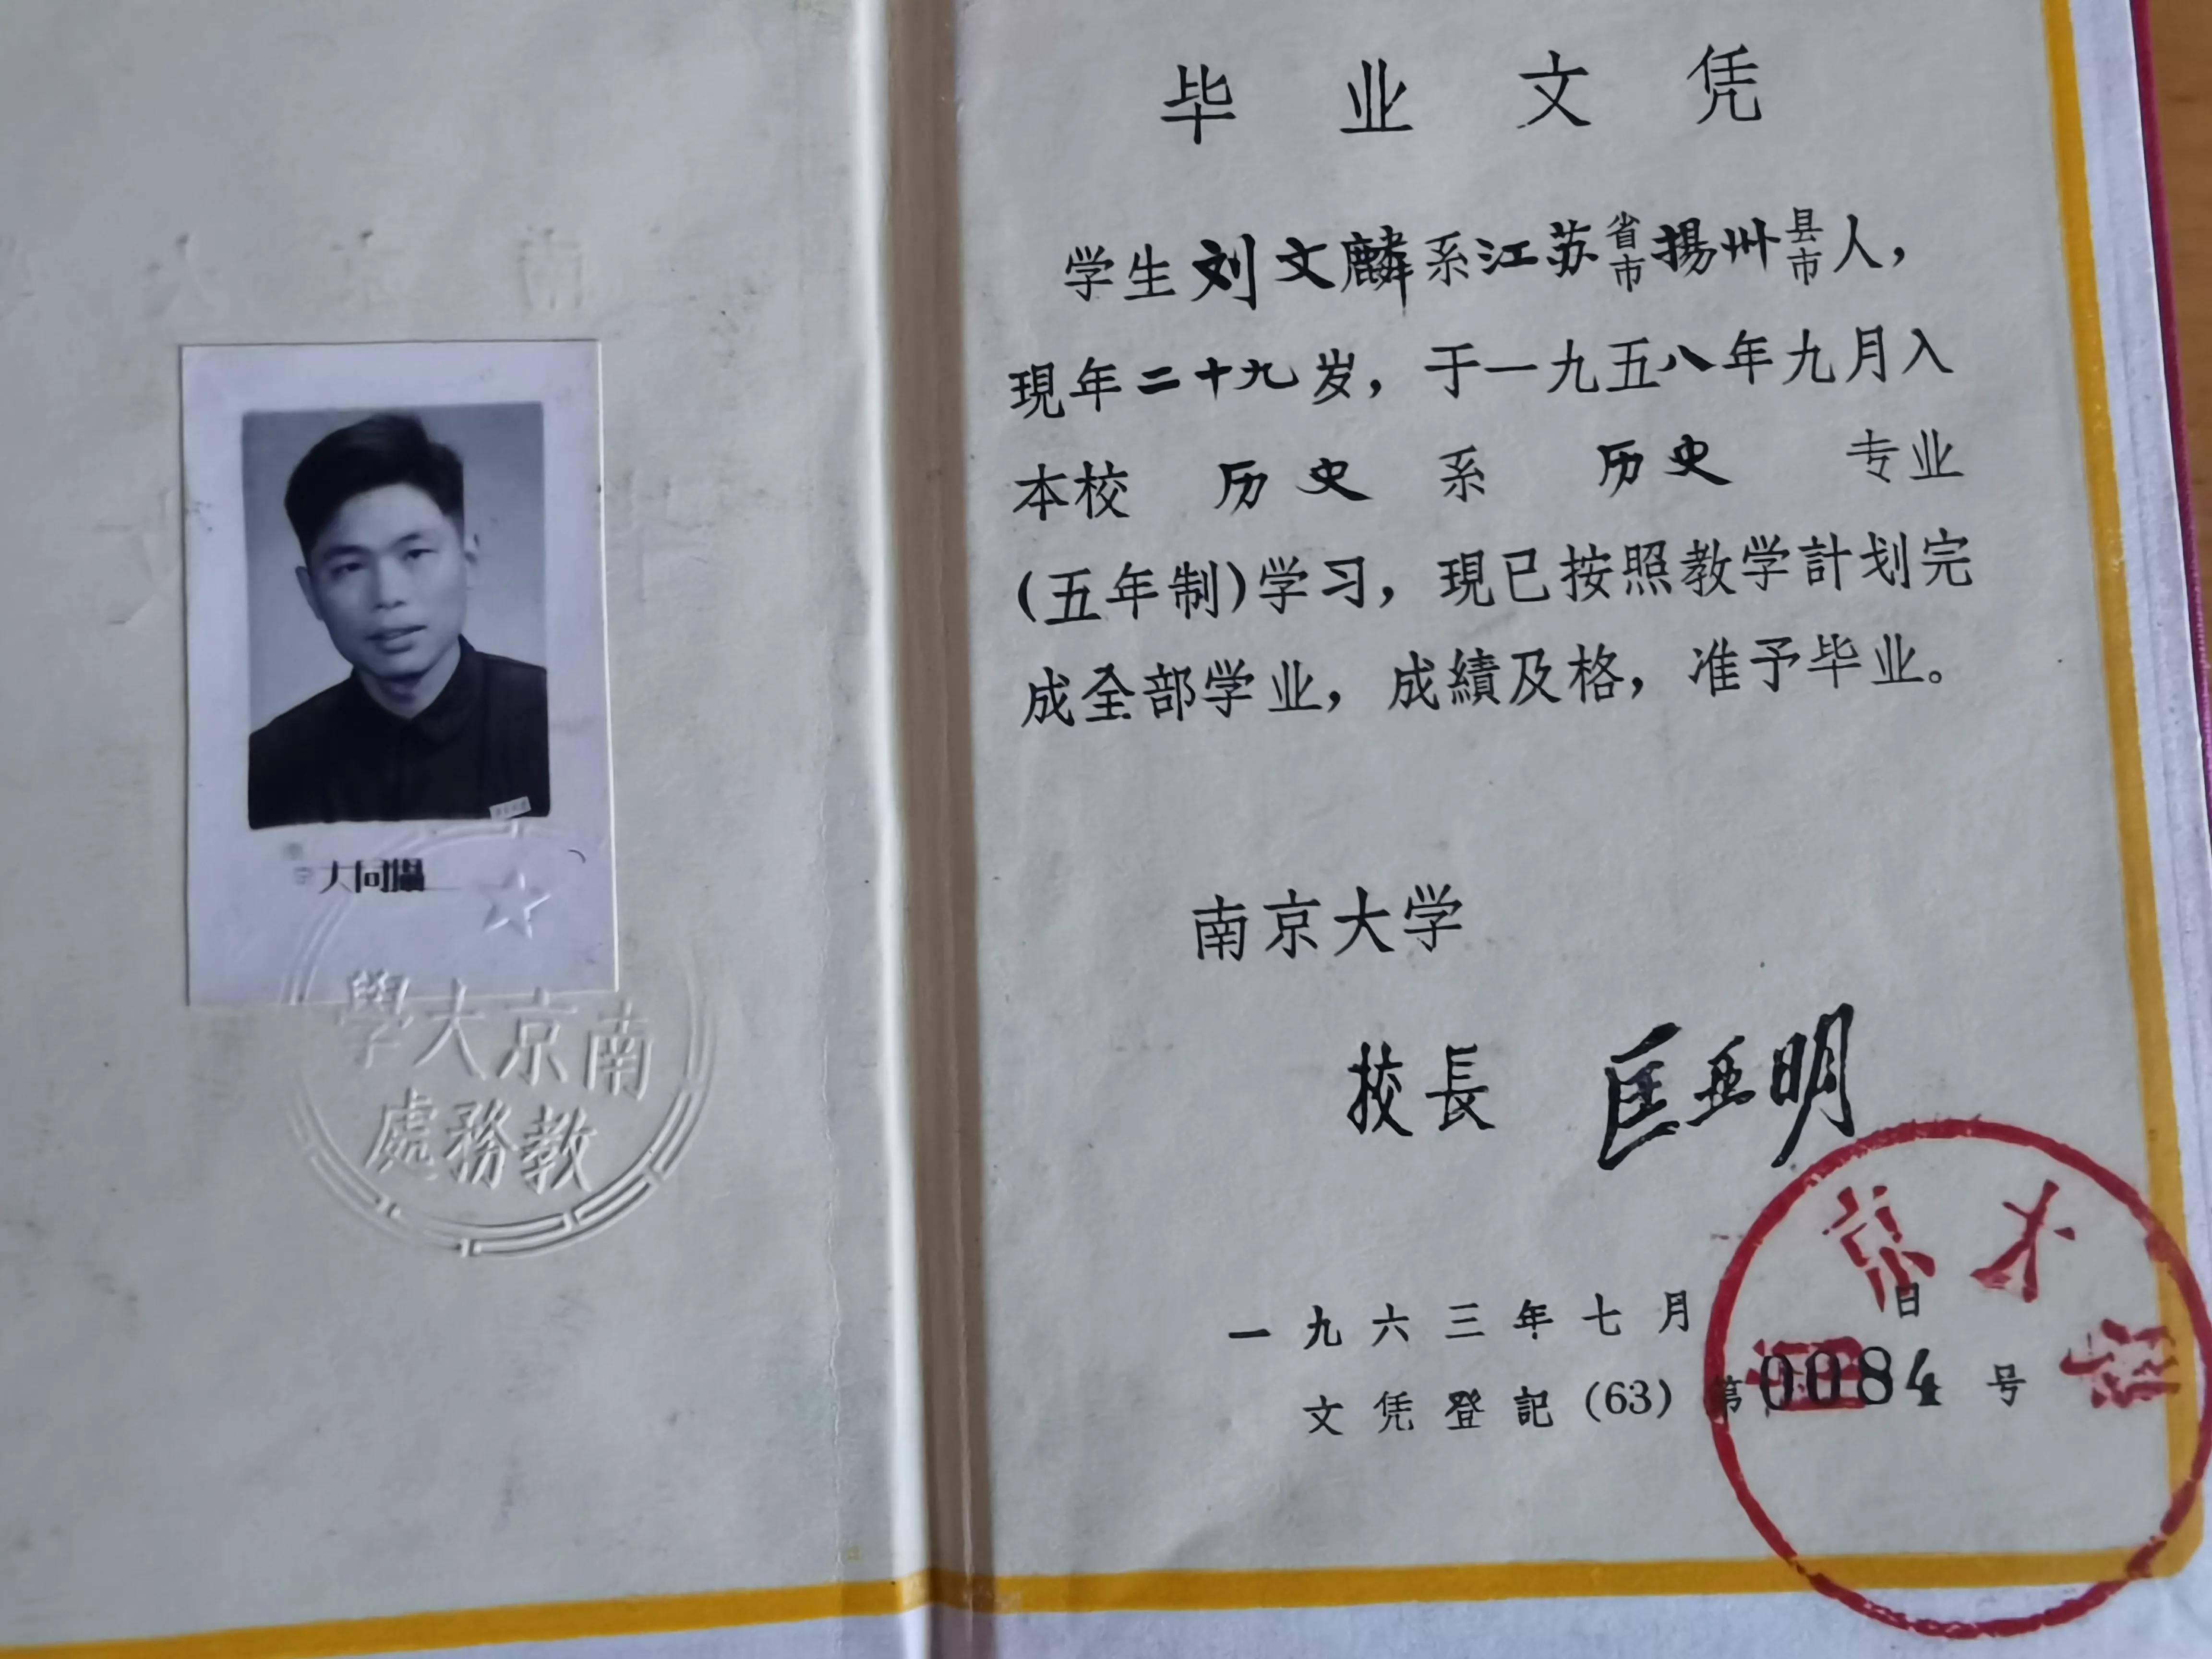 大同攝
學大京南
處務教
毕业文凭
学生刘文麟系江苏省市揚州县市人，
現年二十九岁，于一九五八年九月入
本校 历史 系 历史 专业
(五年制)学习，現已按照教学計划完
成全部学业，成績及格，准予毕业。
南京大学
校長 匡亚明
一九六三年七月 日
文凭登記(63)第0084号
京大